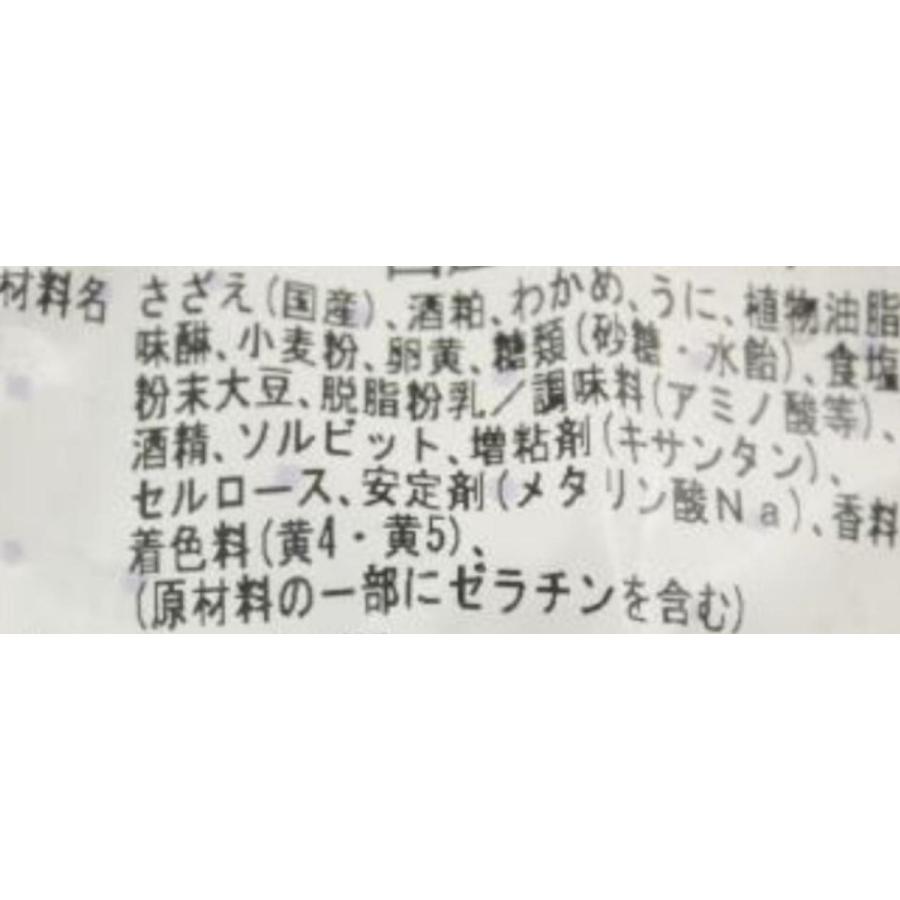 材料名 さざえ(国産)、酒粕、わかめ、うに、植物油脂
味醂、小麦粉、卵黄、糖類(砂糖・水飴)、食塩
粉末大豆、脱脂粉乳／調味料(アミノ酸等)、
酒精、ソルビット、増粘剤(キサンタン)、
セルロース、安定剤(メタリン酸Ｎａ)、香料
着色料(黄4・黄5)、
(原材料の一部にゼラチンを含む)